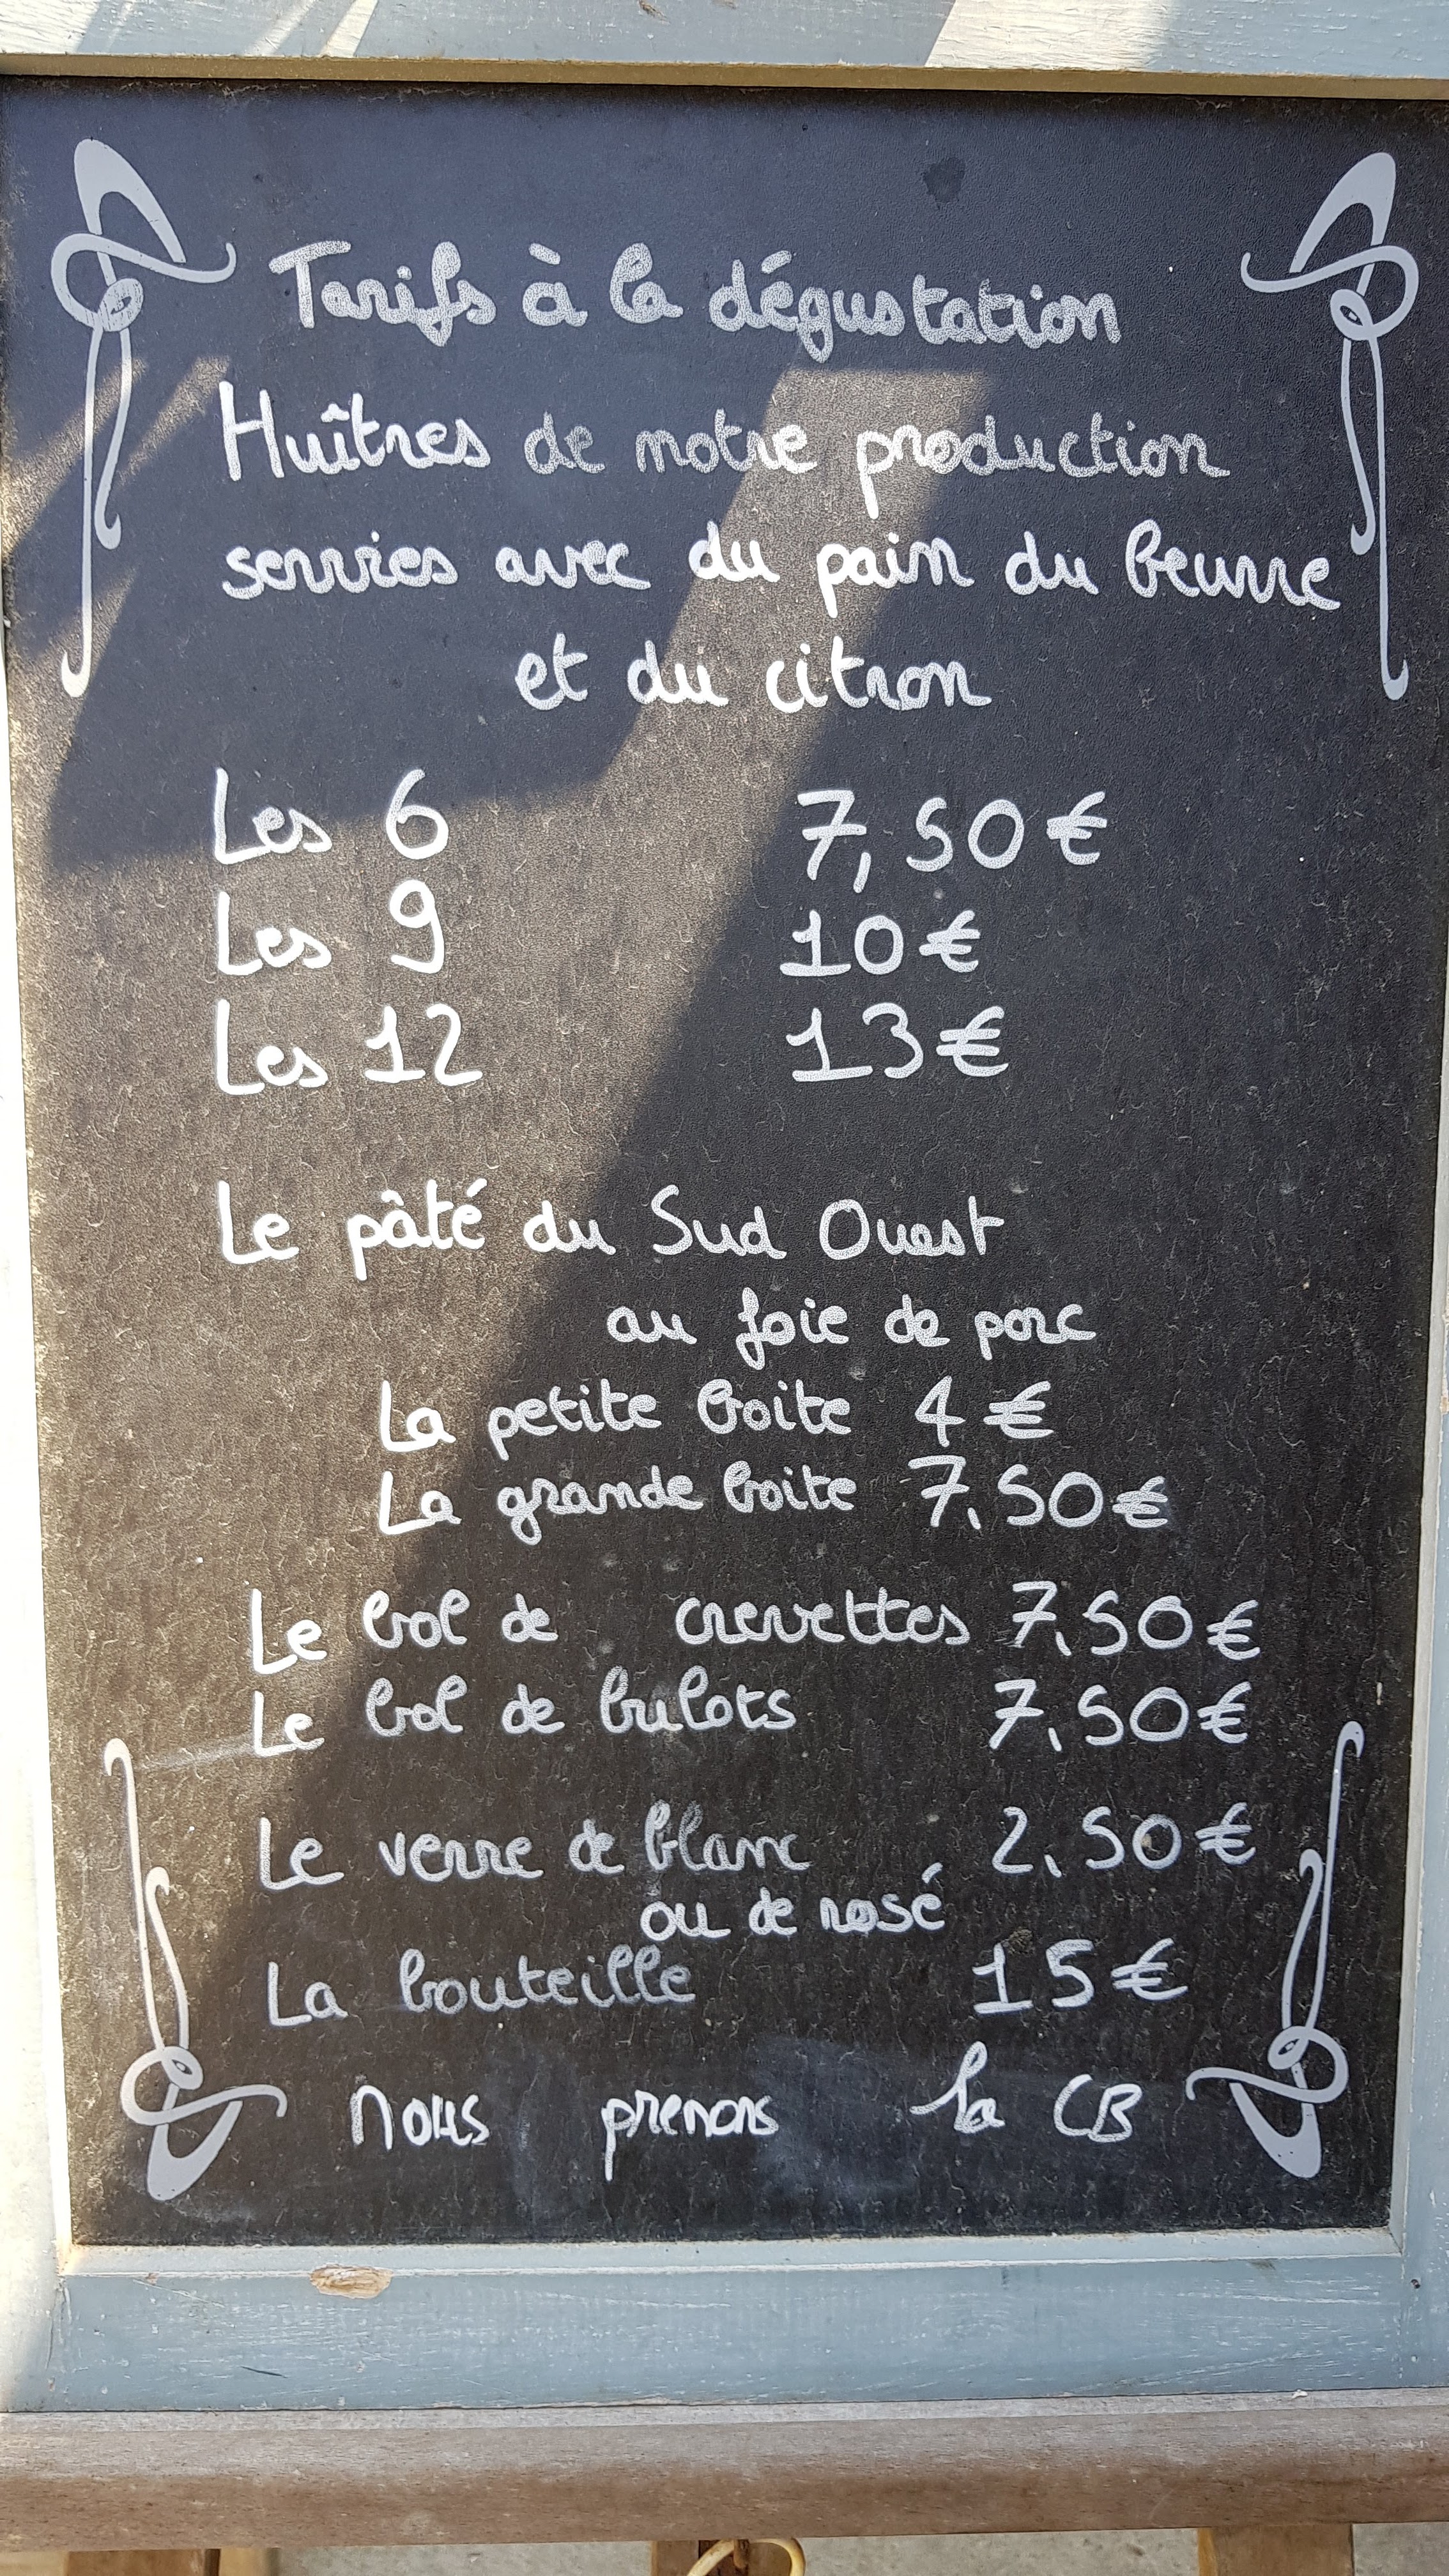 Tarifs à la dégustation
Huîtres de notre production
servies avec du pain du beurre
et du citron
Les 6 7,50€
Les 9 10€
Les 12 13€
Le pâté du Sud Ouest
au foie de porc
La petite boite 4€
La grande boite 7,50€
Le bol de crevettes 7,50€
Le bol de bulots 7,50€
Le verre de blanc 2,50€
ou de rosé
La bouteille 15€
nous prenons la CB